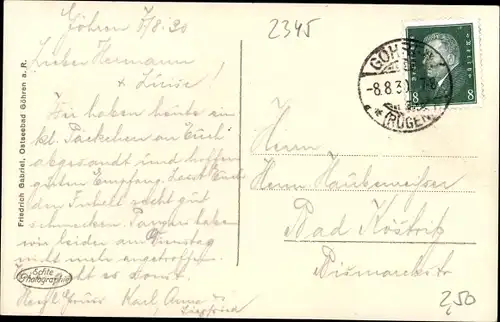 Göhren 8/8.30
Lieber Hermann
+ Luise!
Wir haben heute ein
kl. Päckchen an Euch
abgesandt und hoffen
guten Empfang. Lasst Euch
den Inhalt recht gut
schmecken. haben
wir leider am Dienstag
nicht mehr angetroffen.
geht es sonst
Herzl. Gruss Karl, Anna u.
Siegfried
Friedrich Gabriel, Ostseebad Göhren a. R.
Echte
Photographie
2345
GÖHREN
-8.8.3
7-8
* (RÜGEN)
8
8
Herrn
Herrn
Bad Köstritz
Bismarckstr
2,50